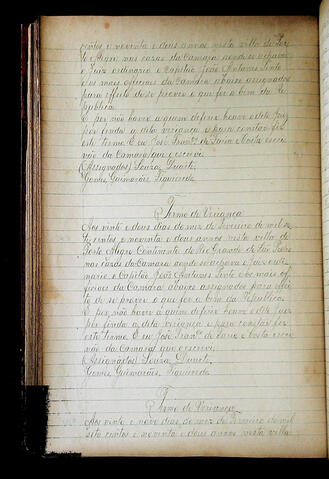 centos e noventa e dous annos nesta villa de Por-
to Alegre nas casas da Camara aonde se achava
o Juiz ordinario o Capitão João Antunes Pinto
e os mais officiaes da Camara abaixo assignados
para effeito de se prover o que for a bem da Re-
publica.
E por não haver a quem deferir houve o dito Juiz
por finda a dita vereança e para constar fiz
este termo. E eu José Franco de Faria e Costa escri-
vão da Camara que o escrevi.
(Assignados) Souza, Duarte,
Gomes, Guimarães, Figueredo.
Termo de Vereança
Aos vinte e dous dias do mez de Fevereiro de mil se-
te centos e noventa e dous annos nesta villa de
Porto Alegre Continente do Rio Grande de São Pedro
nas casas da Camara aonde se achava o Juiz ordi-
nario o Capitão João Antunes Pinto e os mais of-
ficiaes da Camara abaixo assignados para effei-
to de se prover o que for a bem da Republica.
E por não haver a quem deferir houve o dito Juiz
por finda a dita vereança e para constar fiz
este termo. E eu José Franco de Faria e Costa escri-
vão da Camara que o escrevi.
(Assignados) Souza, Duarte,
Gomes, Guimarães, Figueredo.
Termo de Vereança
Aos vinte e nove dias do mez de Fevereiro de mil
sete centos e noventa e dous annos nesta villa